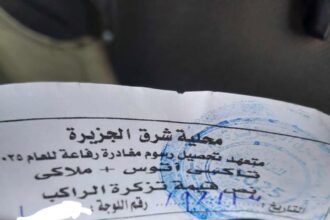 محلية شرق الجزيرة
متعهد تحصيل رسوم مغادرة رفاعة للعام ٢٠٢٥
تاكسي اتوس + ملاكي
نص قيمة تزكرة الراكب
التاريخ: رقم اللوحة: